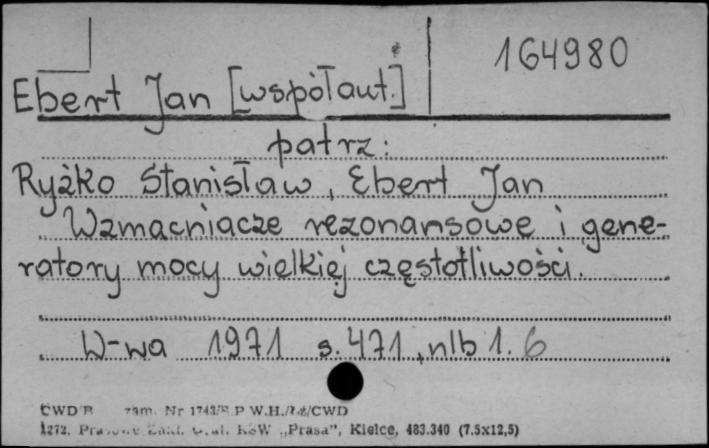 164980
Ebert Jan [współaut.]
patrz:
Ryżko Stanisław, Ebert Jan
Wzmacniacze rezonansowe i gene-
ratory mocy wielkiej częstotliwości.
W-wa 1971 s. 471, nlb 1. 6
CWD zam. Nr W.H./CWD
"Prasa", Kielce, 483.340 (7.5x12,5)